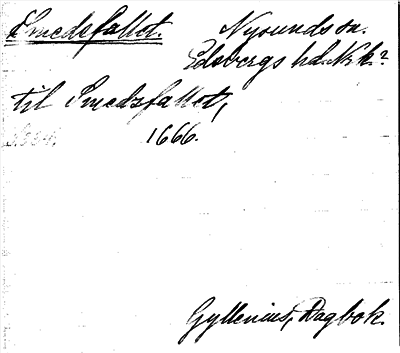 Smedsfallet. Nysunds sn.
Edsbergs hd. Nkl?
til Smedzfallet,
1666.
Gyllenius, Dagbok.